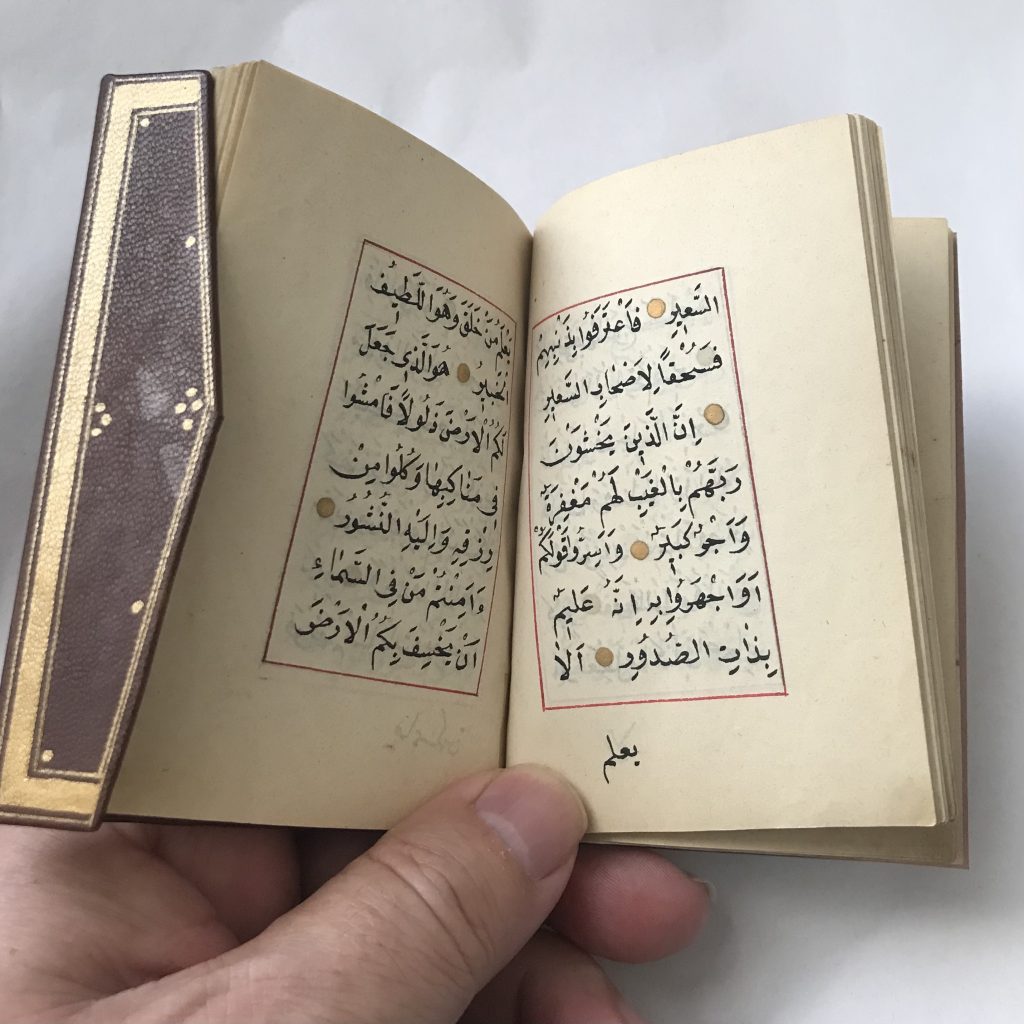 السَّعِيرِ فَاعْتَرَفُوا بِذَنْبِهِمْ
فَسُحْقًا لِأَصْحَابِ السَّعِيرِ
اِنَّ الَّذِينَ يَخْشَوْنَ
رَبَّهُمْ بِالْغَيْبِ لَهُمْ مَغْفِرَةٌ
وَاَجْرٌ كَبِيرٌ وَاَسِرُّوا قَوْلَكُمْ
اَوِاجْهَرُوا بِهِ اِنَّهُ عَلِيمٌ
بِذَاتِ الصُّدُورِ اَلَا
يعلم
يَعْلَمُ مَنْ خَلَقَ وَهُوَ اللَّطِيفُ
الْخَبِيرُ هُوَ الَّذِي جَعَلَ
لَكُمُ الْاَرْضَ ذَلُولًا فَامْشُوا
فِي مَنَاكِبِهَا وَكُلُوا مِنْ
رِزْقِهِ وَاِلَيْهِ النُّشُورُ
ءَاَمِنْتُمْ مَنْ فِي السَّمَاءِ
اَنْ يَخْسِفَ بِكُمُ الْاَرْضَ